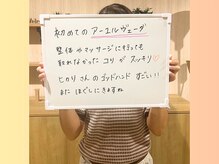 初めての アーユルヴェーダ
整体やマッサージに行っても
取れなかった コリが スッキリ♡
ヒカリさんの ゴッドハンド すごい!!
また ほぐしにきますね